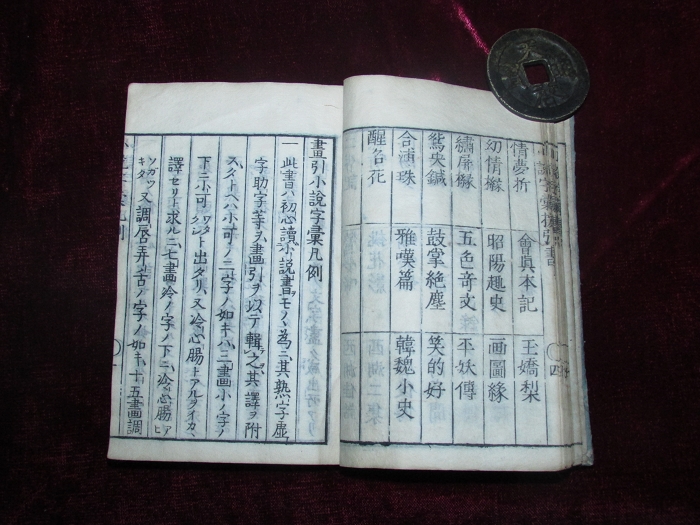 情夢柝　會真本記　玉嬌梨
幻情緣　昭陽趣史　画圖緣
繡屏緣　五色奇文　平妖傳
鴛央鍼　鼓掌絶塵　笑的好
合浦珠　雅嘆篇　韓魏小史
醒名花
畫引小說字彙凡例
一此書ハ初心讀小說書モノヽ為ニ其熟字虛
字助字等ヲ畫引ヲ以テ輯之其譯ヲ附
スタトヘハ小可ノ二字ノ如キハ三畫小ノ字ノ
下ニ小可ト出タリ又冷心腸トアルヲイカヽ
譯セリト求ルニ七畫冷ノ字ノ下ニ冷心腸
又調唇弄舌ノ字ノ如キ十五畫調